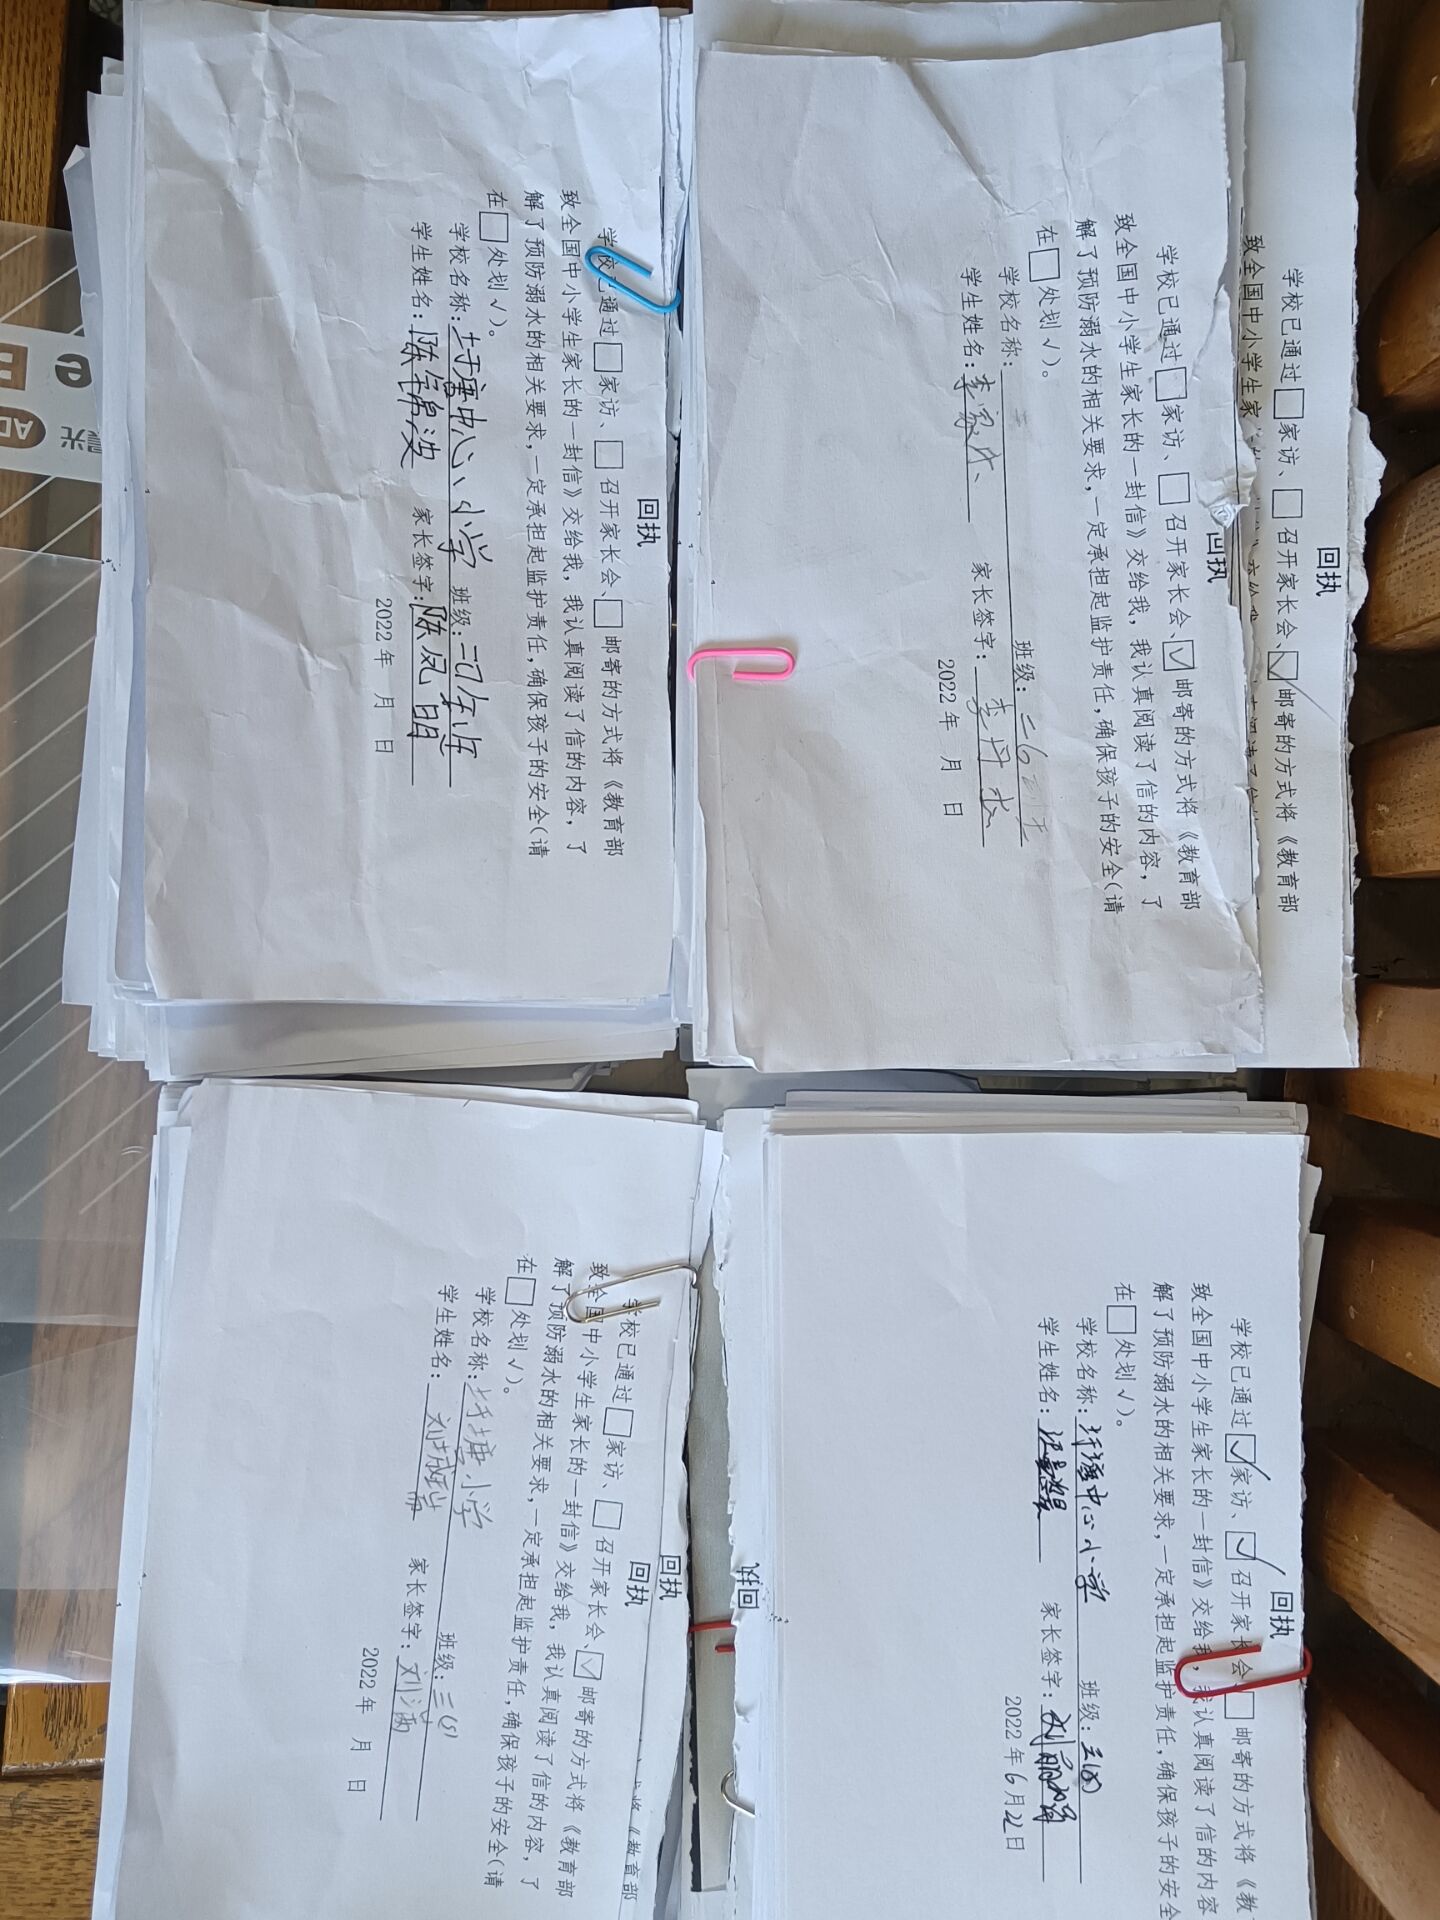 回执
学校已通过□家访、□召开家长会、☑邮寄的方式将《教育部
致全国中小学生家
回执
学校已通过□家访、□召开家长会、☑邮寄的方式将《教育部
致全国中小学生家长的一封信》交给我，我认真阅读了信的内容，了
解了预防溺水的相关要求，一定承担起监护责任，确保孩子的安全(请
在□处划√)。
学校名称： 班级：
学生姓名：李家 家长签字：李丹
2022年 月 日
回执
学校已通过□家访、□召开家长会、□邮寄的方式将《教育部
致全国中小学生家长的一封信》交给我，我认真阅读了信的内容，了
解了预防溺水的相关要求，一定承担起监护责任，确保孩子的安全(请
在□处划√)。
学校名称：中心小学 班级：
学生姓名：陈波 家长签字：陈凤明
2022年 月 日
回执
学校已通过☑家访、☑召开家长会、□邮寄的方式将《教
致全国中小学生家长的一封信》交给我，我认真阅读了信的内容
解了预防溺水的相关要求，一定承担起监护责任，确保孩子的安全
在□处划√)。
学校名称：圩塘中心小学 班级：
学生姓名： 家长签字：刘
2022年6月22日
回执
回执
回执
将《教育部
学校已通过□家访、□召开家长会、☑邮寄的方式将《教育部
致全国中小学生家长的一封信》交给我，我认真阅读了信的内容，了
解了预防溺水的相关要求，一定承担起监护责任，确保孩子的安全(请
在□处划√)。
学校名称：圩塘小学 班级：三
学生姓名：刘 家长签字：刘满
2022年 月 日
晨光